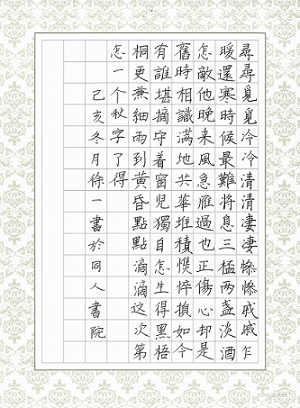 尋尋覓覓冷冷清清凄凄慘慘戚戚乍
暖還寒時候最難將息三桮两盞淡酒
怎敵他晚來風急雁過也正傷心却是
舊時相識滿地共華堆積憔悴損如今
有誰堪摘守着窗兒獨自怎生得黑梧
桐更兼細雨到黃昏點點滴滴這次第
怎一个秋字了得
己亥冬月徐一書於同人書院